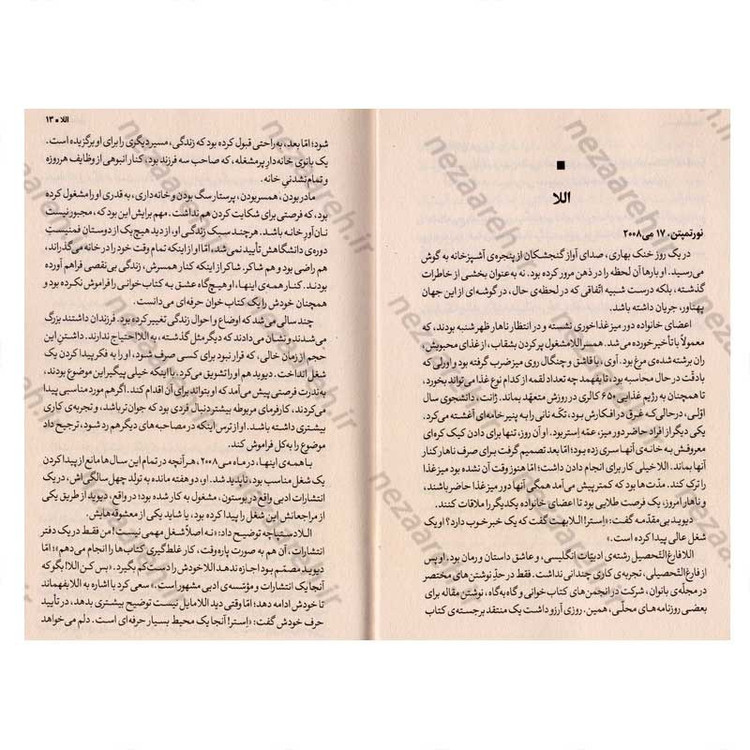 اللا
نورتمپتن، ۱۷ می ۲۰۰۸
در یک روز خنک بهاری، صدای آواز گنجشکان از پنجره‌ی آشپزخانه به گوش
می‌رسید. او بارها آن لحظه را در ذهن مرور کرده بود. نه به‌عنوان بخشی از خاطرات
گذشته، بلکه درست شبیه اتّفاقی که در لحظه‌ی حال، در گوشه‌ای از این جهان
پهناور، جریان داشته باشد.
اعضای خانواده دور میز غذاخوری نشسته و در انتظار ناهار ظهر شنبه بودند، که
معمولاً با تأخیر خورده می‌شد. همسر اللا مشغول پر کردن بشقاب، از غذای محبوبش،
ران برشته شده‌ی مرغ بود. آوی، با قاشق و چنگال روی میز ضرب گرفته بود و اورلی که
با دقّت در حال محاسبه بود، تا بفهمد چه تعداد لقمه از کدام نوع غذا می‌تواند بخورد،
تا همچنان به رژیم غذایی ۶۵۰ کالری در روزش متعهّد بماند. ژانت، دانشجوی سال
اوّلی، درحالی‌که غرق در افکارش بود، تکّه نانی را به پنیر خامه‌ای آغشته می‌کرد.
یکی دیگر از افراد حاضر دور میز، عمّه اِستر بود. او آن روز، تنها برای دادن کیک کره‌ای
معروفش به خانه‌ی آنها سری زده بود؛ امّا بعد تصمیم گرفت برای صرف ناهار کنار
آنها بماند. اللا خیلی کار برای انجام دادن داشت؛ امّا هنوز وقت آن نشده بود میز غذا
را ترک کند. مدّت‌ها بود که کمتر پیش می‌آمد همگی آنها دور میز غذا حاضر باشند،
و ناهار امروز، یک فرصت طلایی بود تا اعضای خانواده یکدیگر را ملاقات کنند.
دیوید بی‌مقدّمه گفت: «اِستر! اللا بهت گفت که یک خبر خوب دارد؟ او یک
شغل عالی پیدا کرده است.»
اللا فارغ‌التّحصیل رشته‌ی ادبیّات انگلیسی، و عاشق داستان و رمان بود، او پس
از فارغ‌التّحصیلی، تجربه‌ی کاری چندانی نداشت. فقط در حدّ نوشتن‌های مختصر
در مجلّه‌ی بانوان، شرکت در انجمن‌های کتاب خوانی و گاه به‌گاه، نوشتن مقاله برای
بعضی روزنامه‌های محلّی، همین. روزی آرزو داشت یک منتقد برجسته‌ی کتاب
اللا ■ ۱۳
شود؛ امّا بعد، به راحتی قبول کرده بود که زندگی، مسیر دیگری را برای او برگزیده است.
یک بانوی خانه‌دارِ پرمشغله، که صاحب سه فرزند بود. کنار انبوهی از وظایف هرروزه
و تمام نشدنیِ خانه.
مادر بودن، همسر بودن، پرستار سگ بودن و خانه‌داری، به قدری او را مشغول کرده
بود، که فرصتی برای شکایت کردن هم نداشت. مهم برایش این بود که، مجبور نیست
نان‌آور خانه باشد. هرچند سبک زندگی او، از دید هیچ‌یک از دوستان فمنیستِ
دوره‌ی دانشگاهش تأیید نمی‌شد، امّا او از اینکه تمام وقت خود را در خانه می‌گذراند،
هم راضی بود و هم شاکر. شاکر از اینکه کنار همسرش، زندگی بی‌نقصی فراهم آورده
بودند. کنار همه‌ی اینها، او هیچ‌گاه عشق به کتاب‌خوانی را فراموش نکرده بود و
همچنان خودش را یک کتاب خوان حرفه ای می‌دانست.
چند سالی می‌شد که اوضاع و احوال زندگی تغییر کرده بود. فرزندان داشتند بزرگ
می‌شدند و نشان می‌دادند که دیگر مثل گذشته، به اللا احتیاج ندارند. داشتنِ این
حجم از زمان خالی، که قرار نبود برای کسی صرف شود، او را به فکر پیدا کردن یک
شغل انداخت. دیوید هم او را تشویق می‌کرد، با اینکه خیلی پیگیر این موضوع بودند،
به ندرت فرصتی پیش می‌آمد که او بتواند برای آن اقدام کند. اگر هم مورد مناسبی پیدا
می‌کردند، کارفرمای مربوطه بیشتر دنبال فردی بود که جوان‌تر باشد، و تجربه‌ی کاری
بیشتری داشته باشد. او از ترس اینکه در مصاحبه‌های دیگر هم رد شود، ترجیح داد
موضوع را به کل فراموش کند.
با همه‌ی اینها، در ماه می ۲۰۰۸، هر آنچه در تمام این سال‌ها مانع از پیدا کردن
یک شغل مناسب بود، ناپدید شد. او، دو هفته مانده به تولد چهل سالگی‌اش، در یک
انتشارات ادبی واقع در بوستون، مشغول به کار شده بود؛ در واقع، دیوید از طریق یکی
از مراجعانش این شغل را پیدا کرده بود، یا شاید یکی از معشوقه‌هایش.
اللا دستپاچه توضیح داد: «نه اصلاً شغل مهمی نیست! من فقط در یک دفتر
انتشارات، آن هم به صورت پاره‌وقت، کار غلط‌گیری کتاب‌ها را انجام می‌دهم»؛ امّا
دیوید مصمّم بود اجازه ندهد اللا خودش را دست‌کم بگیرد. «بس کن اللا! بگو که
آنجا یک انتشارات و مؤسّسه‌ی ادبی مشهور است.» سعی کرد با اشاره به اللا بفهماند
تا خودش ادامه دهد؛ امّا وقتی دید اللا مایل نیست توضیح بیشتری بدهد، در تأیید
حرف خودش گفت: «اِستر! آنجا یک محیط بسیار حرفه ای است. دلم می‌خواهد
nezaareh.ir